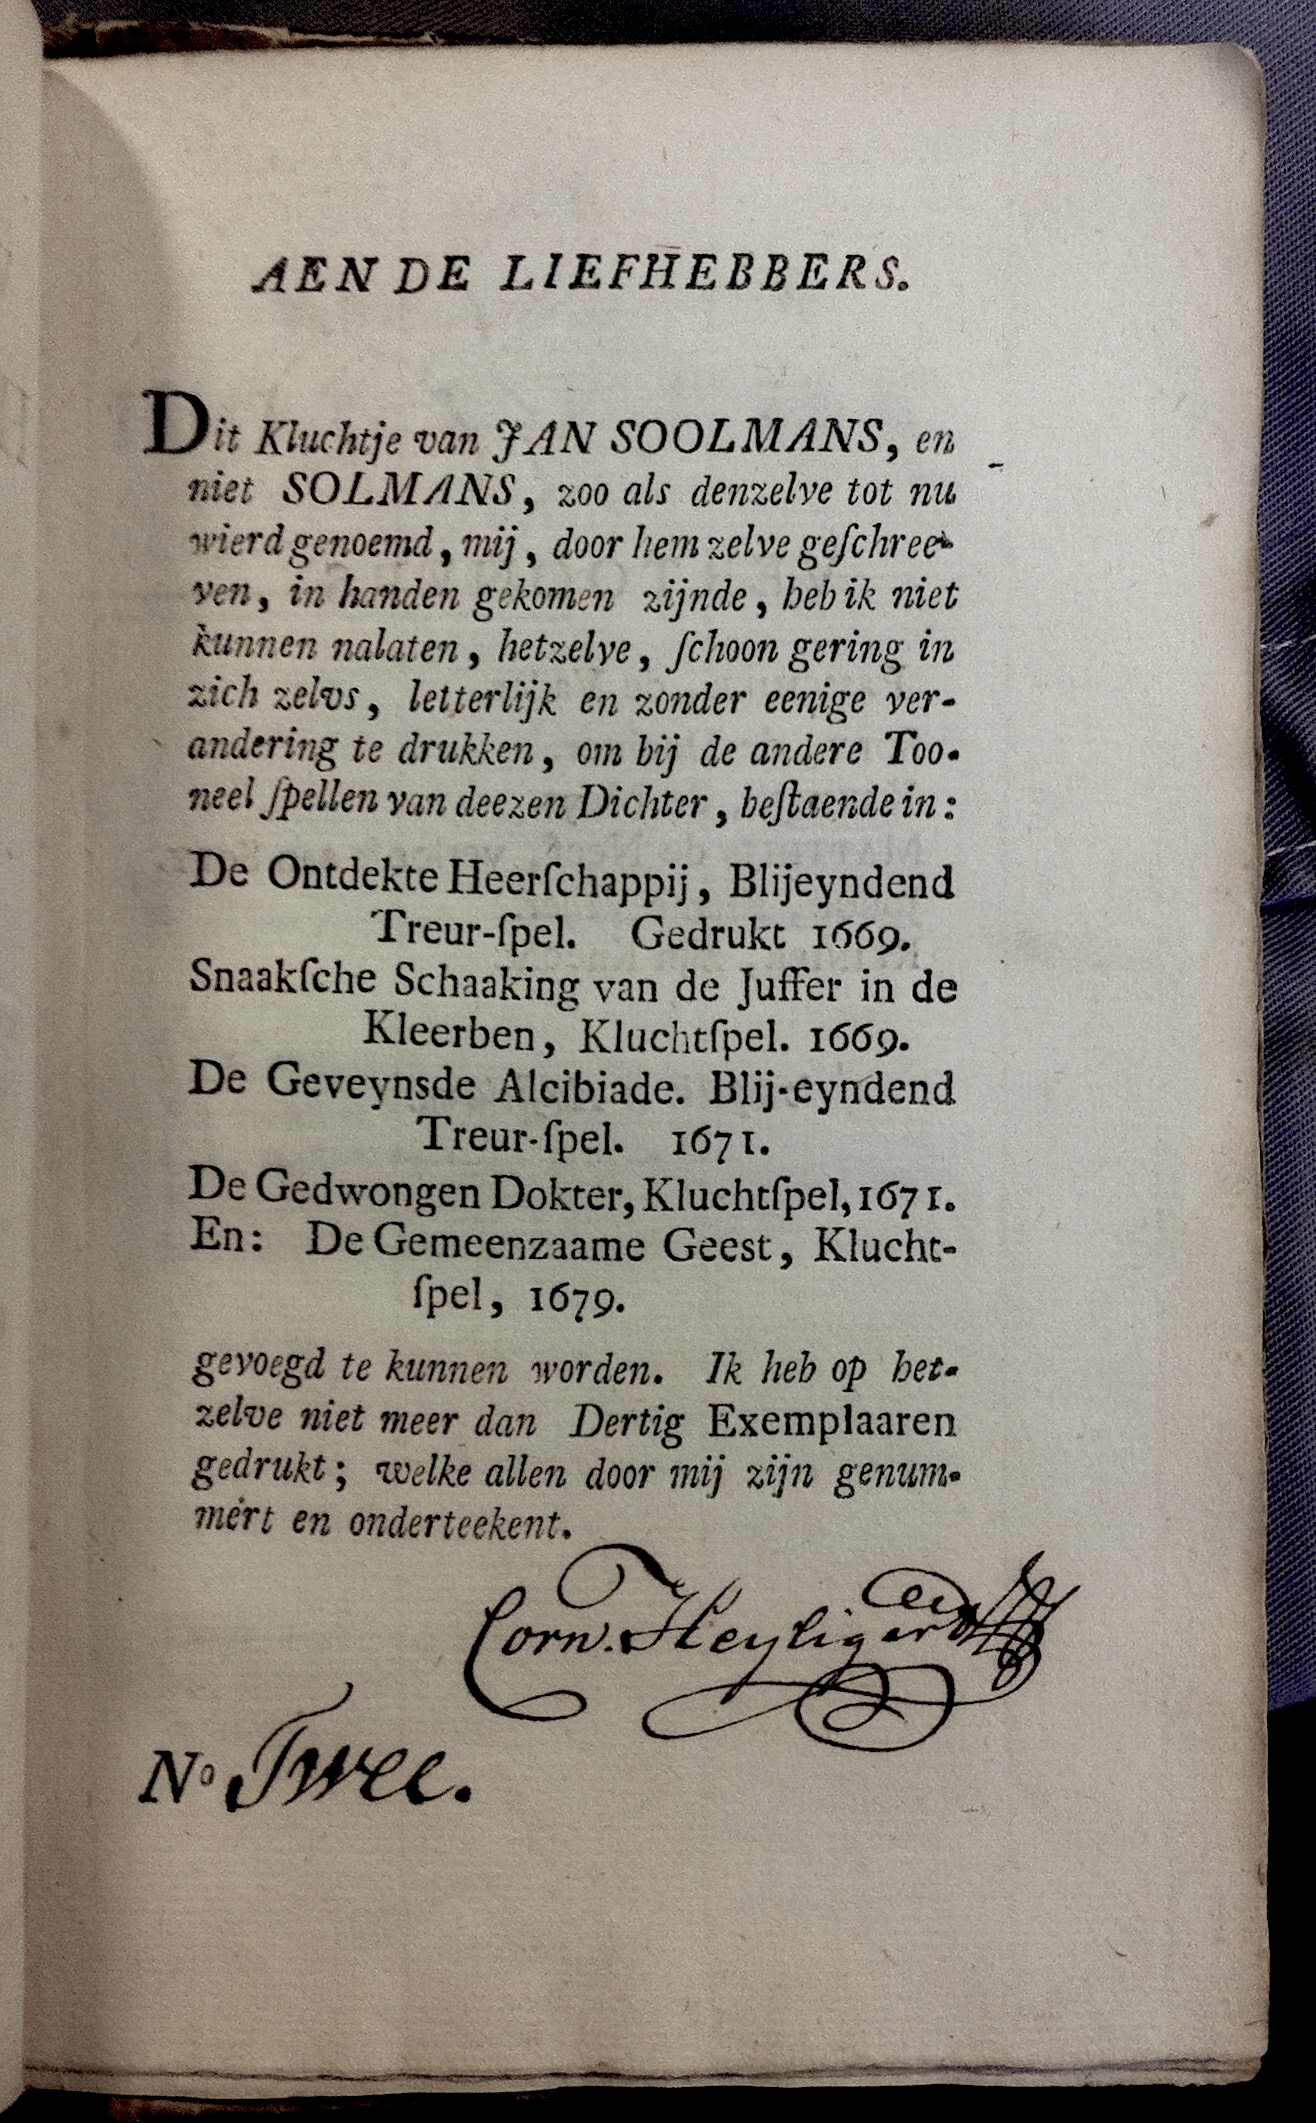 AEN DE LIEFHEBBERS.
Dit Kluchtje van JAN SOOLMANS, en
niet SOLMANS, zoo als denzelve tot nu
wierd genoemd, mij, door hem zelve geſchree-
ven, in handen gekomen zijnde, heb ik niet
kunnen nalaten, hetzelve, ſchoon gering in
zich zelvs, letterlijk en zonder eenige ver-
andering te drukken, om bij de andere Too-
neel ſpellen van deezen Dichter, beſtaende in:
De Ontdekte Heerſchappij, Blijeyndend
Treur-ſpel. Gedrukt 1669.
Snaakſche Schaaking van de Juffer in de
Kleerben, Kluchtſpel. 1669.
De Geveynsde Alcibiade. Blij-eyndend
Treur-ſpel. 1671.
De Gedwongen Dokter, Kluchtſpel, 1671.
En: De Gemeenzaame Geest, Klucht-
ſpel, 1679.
gevoegd te kunnen worden. Ik heb op het-
zelve niet meer dan Dertig Exemplaaren
gedrukt; welke allen door mij zijn genum-
mert en onderteekent.
Corn. Heyligert
No Twee.